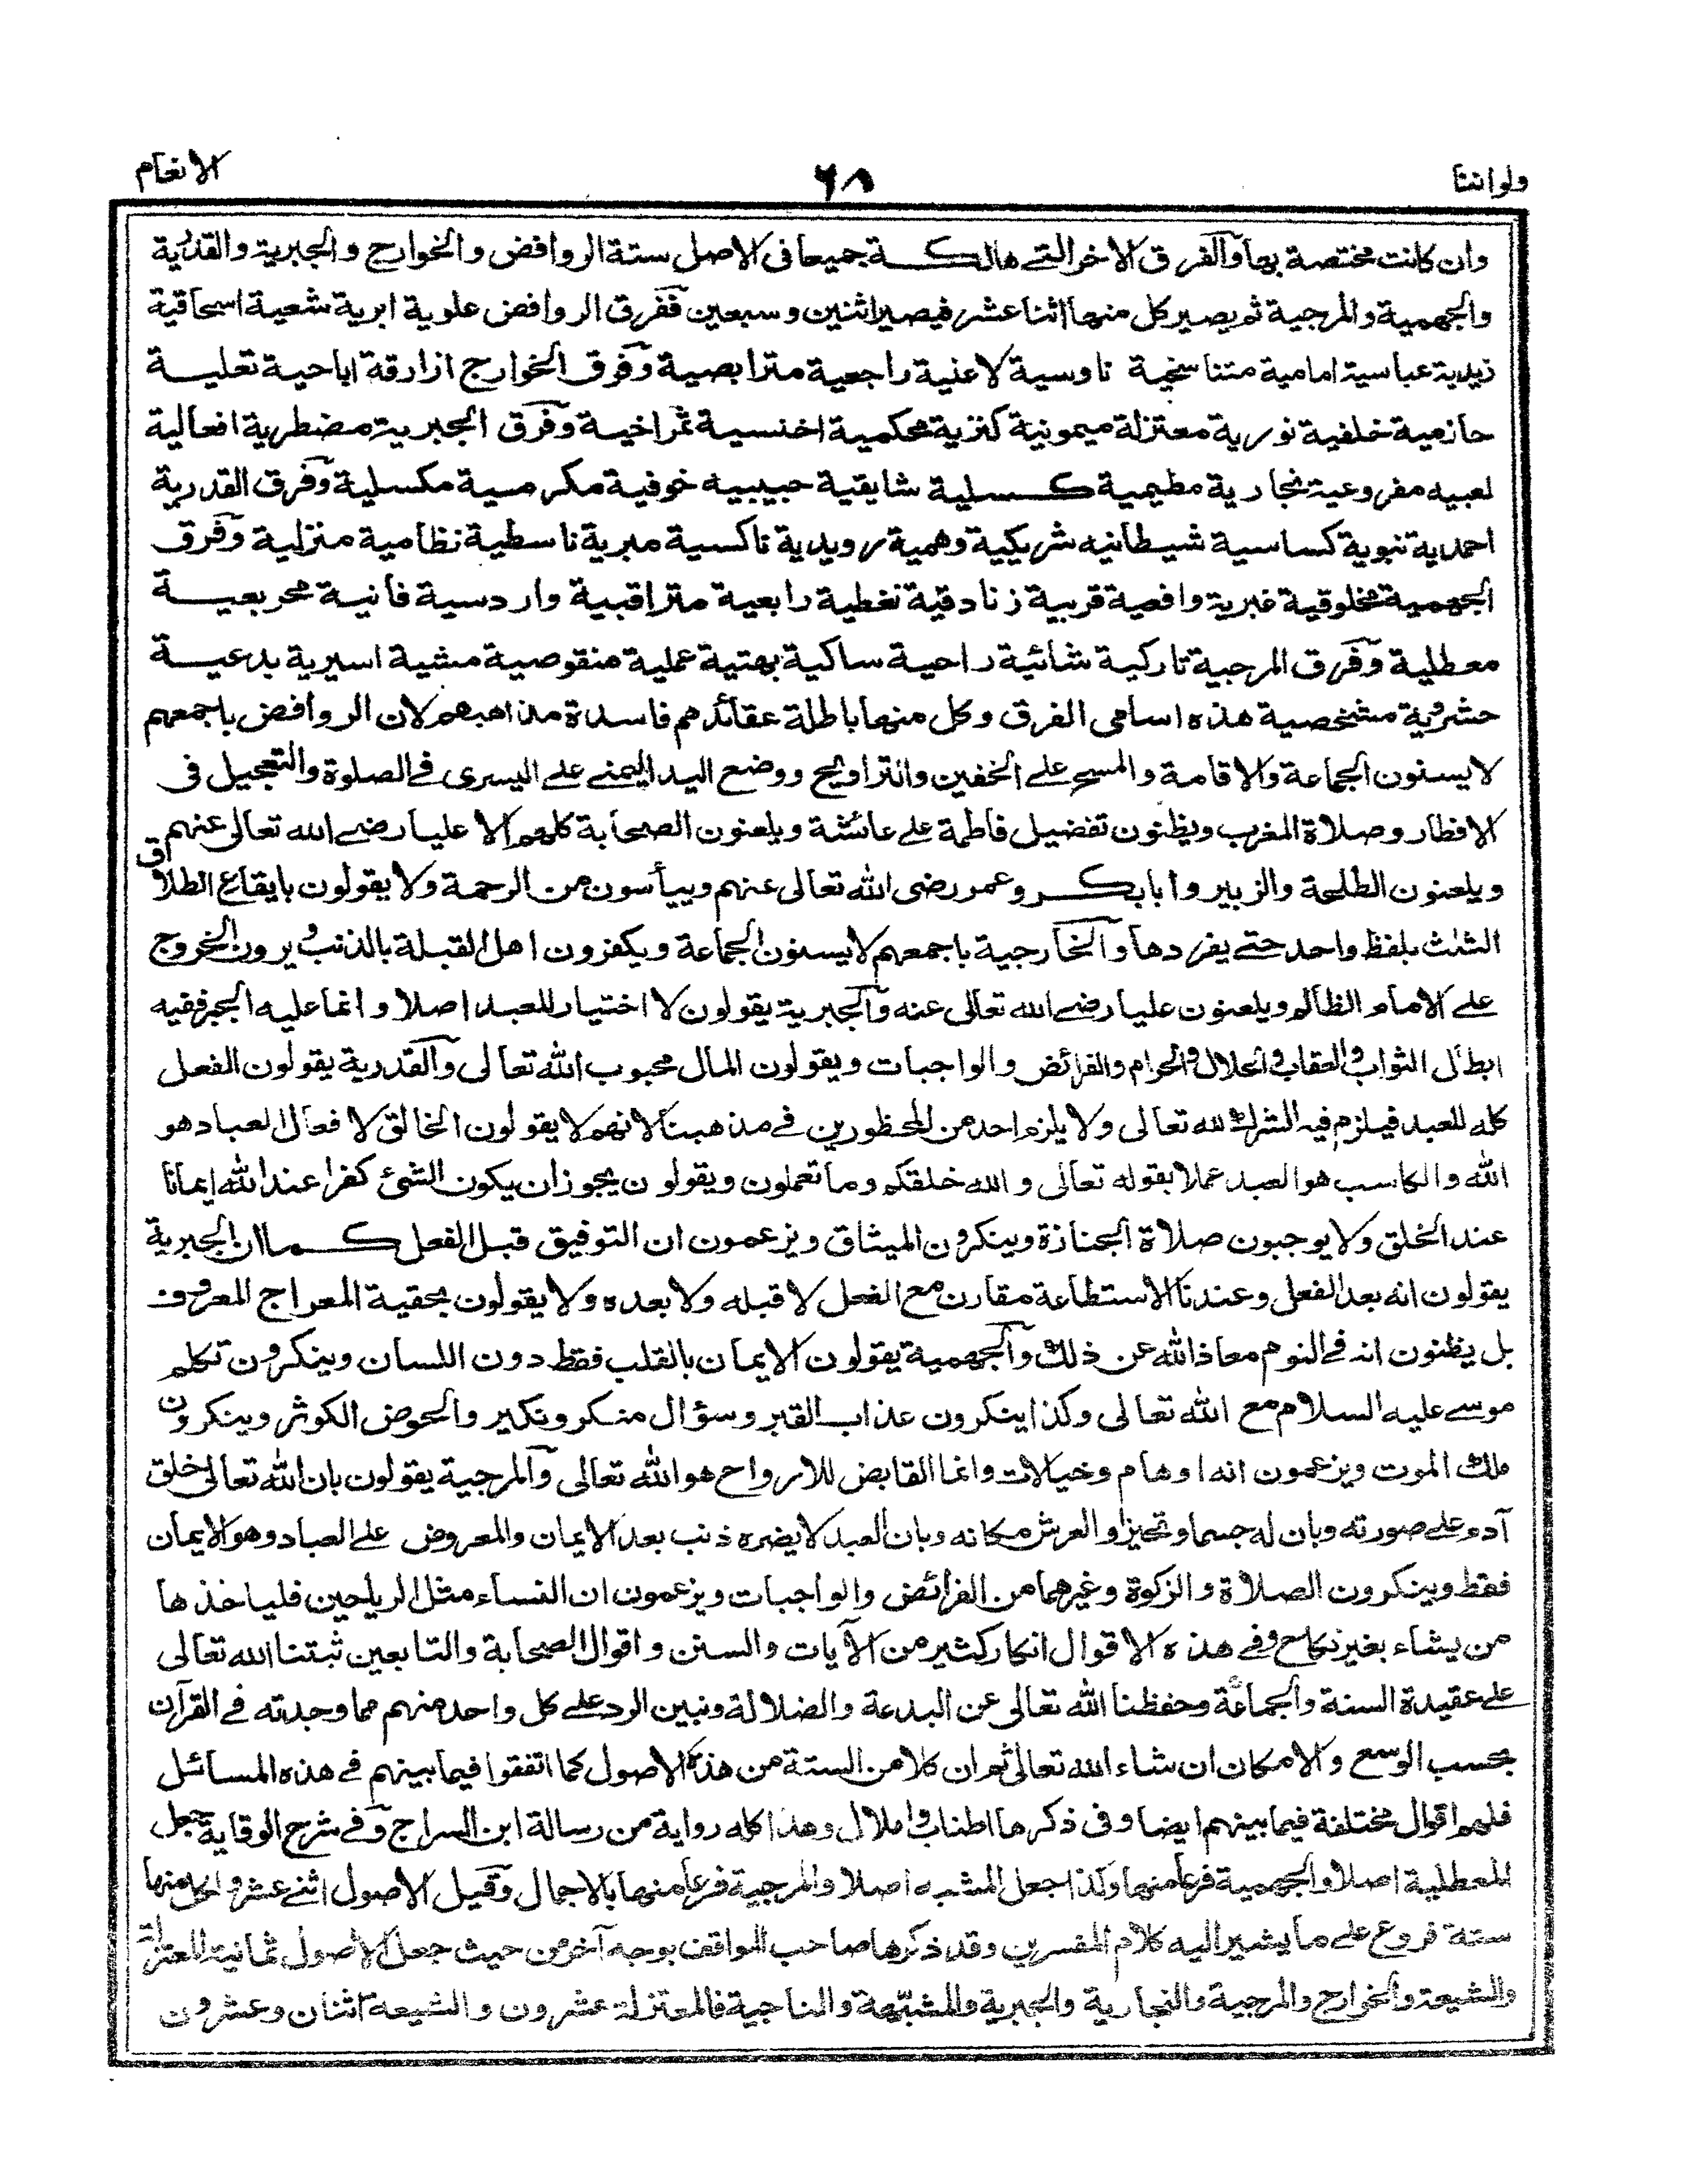 ولواننا
٦٨
الانعام
وان كانت مختصة بها والفرق الاخر التي هالكة جميعا فى الاصل ستة الروافض والخوارج والجبرية والقدرية
والجهمية والمرجية ثم يصير كل منها اثنا عشر فيصير اثنين وسبعين ففرق الروافض علوية ابرية شعية اسحاقية
زيدية عباسية امامية متناسخية ناوسية لاعنية راجعية مترابصية وفرق الخوارج ازارقة اباحية تعلية
حازمية خلفية نورية معتزلة ميمونية كنزية محكمية اخنسية ثمراخية وفرق الجبرية مضطرية افعالية
لعبيه مفروعية نجارية مطيمية كسلية شايقية حبيبيه خوفية مكرمسية مكسلية وفرق القدرية
احمدية تنبوية كساسية شيطانيه شريكية وهمية رويدية ناكسية مبرية ناسطية نظامية منزلية وفرق
الجهمية مخلوقية غيرية وافصية قربية زنادقية نغطية رابعية متراقبية واردسية فانية محربعية
معطلية وفرق المرجية تاركية شائية راحية ساكية بهتية عملية منقوصية مشية اسيرية بدعية
حشرية مشخصية هذه اسامى الفرق وكل منها باطلة عقائدهم فاسدة مذاهبهم لان الروافض باجمعهم
لايسنون الجماعة والاقامة والمسح على الخفين والتراويح ووضع اليد اليمنى على اليسرى فى الصلوة والتعجيل فى
الافطار وصلاة المغرب ويظنون تفضيل فاطمة على عائشة ويلعنون الصحابة كلهم الا عليا رضى الله تعالى عنهم
ويلعنون الطلحة والزبير وابا بكر وعمر رضى الله تعالى عنهم وييأسون من الرحمة ولا يقولون بايقاع الطلاق
الثلث بلفظ واحد حتى يفردها والخارجية باجمعهم لايسنون الجماعة ويكفرون اهل القبلة بالذنب ويرون الخروج
على الامام الظالم ويلعنون عليا رضى الله تعالى عنه والجبرية يقولون لا اختيار للعبد اصلا وانما عليه الجبر ففيه
ابطال الثواب والعقاب والحلال والحرام والفرائض والواجبات ويقولون المال محبوب الله تعالى والقدرية يقولون الفعل
كله للعبد فيلزم فيه الشرك لله تعالى ولا يلزم احد من المحظورين فى مذهبنا لانهم لا يقولون الخالق لافعال العباد هو
الله والكاسب هو العبد عملا بقوله تعالى والله خلقكم وما تعملون ويقولون يجوز ان يكون الشئ كفرا عند الله ايمانا
عند الخلق ولا يوجبون صلاة الجنازة وينكرون الميثاق ويزعمون ان التوفيق قبل الفعل كما ان الجبرية
يقولون انه بعد الفعل وعندنا الاستطاعة مقارن مع الفعل لا قبله ولا بعده ولا يقولون بحقية المعراج المعروف
بل يظنون انه فى النوم معاذ الله عن ذلك والجهمية يقولون الايمان بالقلب فقط دون اللسان وينكرون تكلم
موسى عليه السلام مع الله تعالى وكذا ينكرون عذاب القبر وسؤال منكر ونكير والحوض الكوثر وينكرون
ملك الموت ويزعمون انه اوهام وخيالات وانما القابض للارواح هو الله تعالى والمرجية يقولون بان الله تعالى خلق
آدم على صورته وبان له جسما وتحيزا والعرش مكانه وبان العبد لا يضره ذنب بعد الايمان والمعروض على العباد هو الايمان
فقط وينكرون الصلاة والزكوة وغيرهما من الفرائض والواجبات ويزعمون ان النساء مثل الرياحين فلياخذها
من يشاء بغير نكاح وفى هذه الاقوال انكار كثير من الآيات والسنن واقوال الصحابة والتابعين ثبتنا الله تعالى
على عقيدة السنة والجماعة وحفظنا الله تعالى عن البدعة والضلالة ونبين الرد على كل واحد منهم مما وجدته فى القرآن
بحسب الوسع والامكان ان شاء الله تعالى ثم ان كلا من الستة من هذه الاصول كما اتفقوا فيما بينهم فى هذه المسائل
فلهم اقوال مختلفة فيما بينهم ايضا وفى ذكرها اطناب واملال وهذا كله رواية من رسالة ابن السراج وفى شرح الوقاية جعل
المعطلية اصلا والجهمية فرعا منها وكذا جعل المشبه اصلا والمرجية فرعا منها بالاجمال وقيل الاصول اثنى عشر ولكل منها
ستة فروع على ما يشير اليه كلام المفسرين وقد ذكرها صاحب المواقف بوجه آخر من حيث جعل الاصول ثمانية المعتزلة
والشيعة والخوارج والمرجية والنجارية والجبرية والمشبّهة والناجية فالمعتزلة عشرون والشيعة اثنان وعشرون